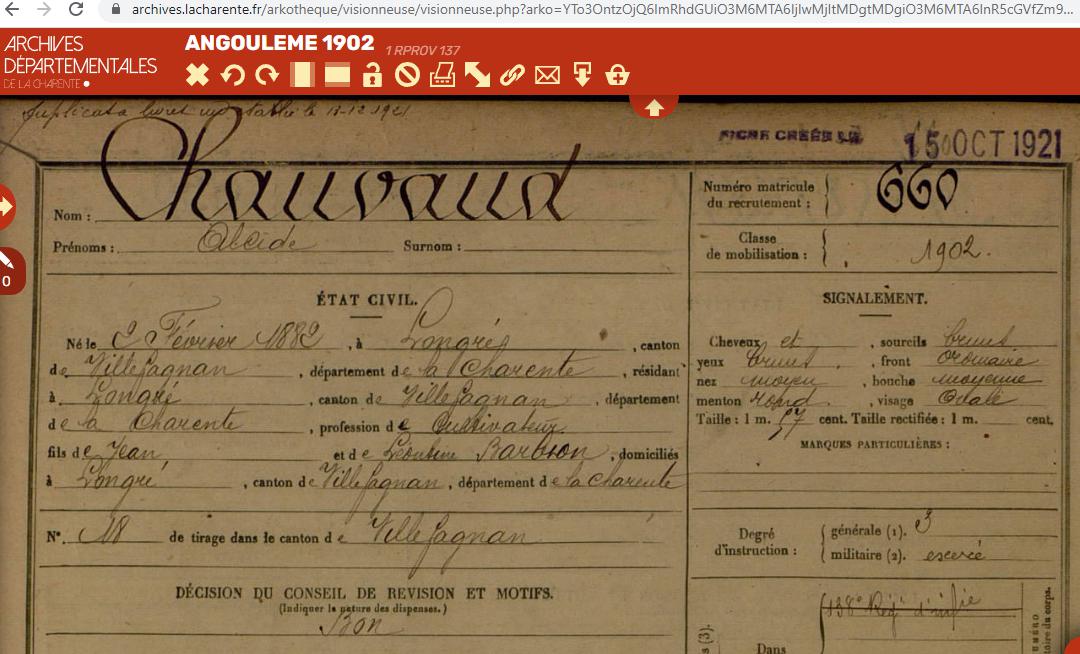 archives.lacharente.fr/arkotheque/visionneuse/visionneuse.php?arko=YTo3OntzOjQ6ImRhdGUiO3M6MTA6IjIwMjItMDgtMDgiO3M6MTA6InR5cGVfZm9...
ARCHIVES
DÉPARTEMENTALES
DE LA CHARENTE
ANGOULEME 1902 1 RPROV 137
0
Duplicata livret établi le 13-12 1921
FICHE CRÉÉE LE 15 OCT 1921
Nom : Chauvaud
Prénoms : Alcide Surnom :
ÉTAT CIVIL.
Né le 2 Février 1882, à Longré, canton
de Villefagnan, département de la Charente, résidant
à Longré, canton de Villefagnan, département
de la Charente, profession de Cultivateur
fils de Jean et de Léontine Barbion, domiciliés
à Longré, canton de Villefagnan, département de la Charente
N°. 118 de tirage dans le canton de Villefagnan
DÉCISION DU CONSEIL DE REVISION ET MOTIFS.
(Indiquer la nature des dispenses.)
Bon
Numéro matricule
du recrutement : 660
Classe
de mobilisation : 1902.
SIGNALEMENT.
Cheveux et, sourcils bruns
yeux bruns, front ordinaire
nez moyen, bouche moyenne
menton rond, visage Ovale
Taille : 1 m. 57 cent. Taille rectifiée : 1 m. cent.
MARQUES PARTICULIÈRES :
Degré
d'instruction :
générale (1). 3
militaire (2). exercé
138e Régt d'infie
Dans
(3).
NUMÉRO
toire du corps.